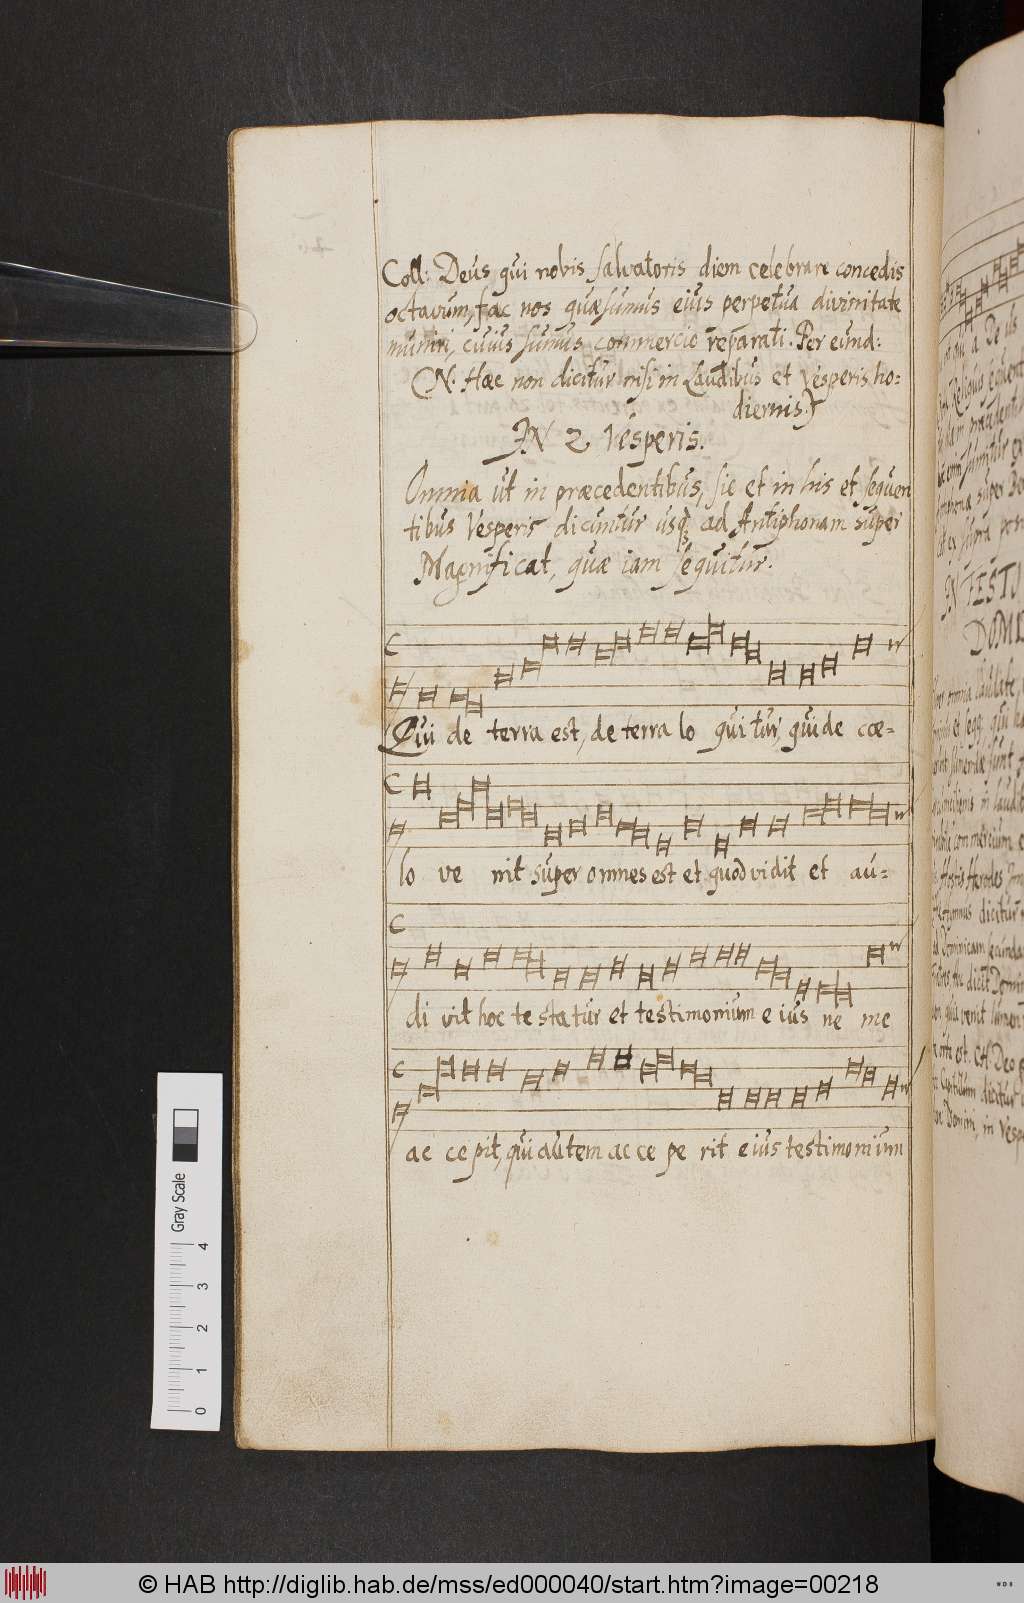 Coll: Deus qui nobis salvatoris diem celebrare concedis
octavum, fac nos quæsumus eius perpetua divinitate
muniri, cuius sumus commercio reparati. Per eund:
(N. Hæc non dicitur nisi in Laudibus et Vesperis ho=
diernis.)
IN 2 Vesperis.
Omnia ut in præcedentibus, sic et in his et sequen
tibus Vesperis dicuntur usq; ad Antiphonam super
Magnificat, quæ iam sequitur.
Qui de terra est, de terra lo qui tur, qui de cœ=
lo ve nit super omnes est et quod vidit et au=
di vit hoc te sta tur et testimonium e ius ne me
ac ce pit, qui autem ac ce pe rit e ius testimonium
IN FESTO
Gray Scale
4
3
2
1
0
© HAB http://diglib.hab.de/mss/ed000040/start.htm?image=00218
WDB